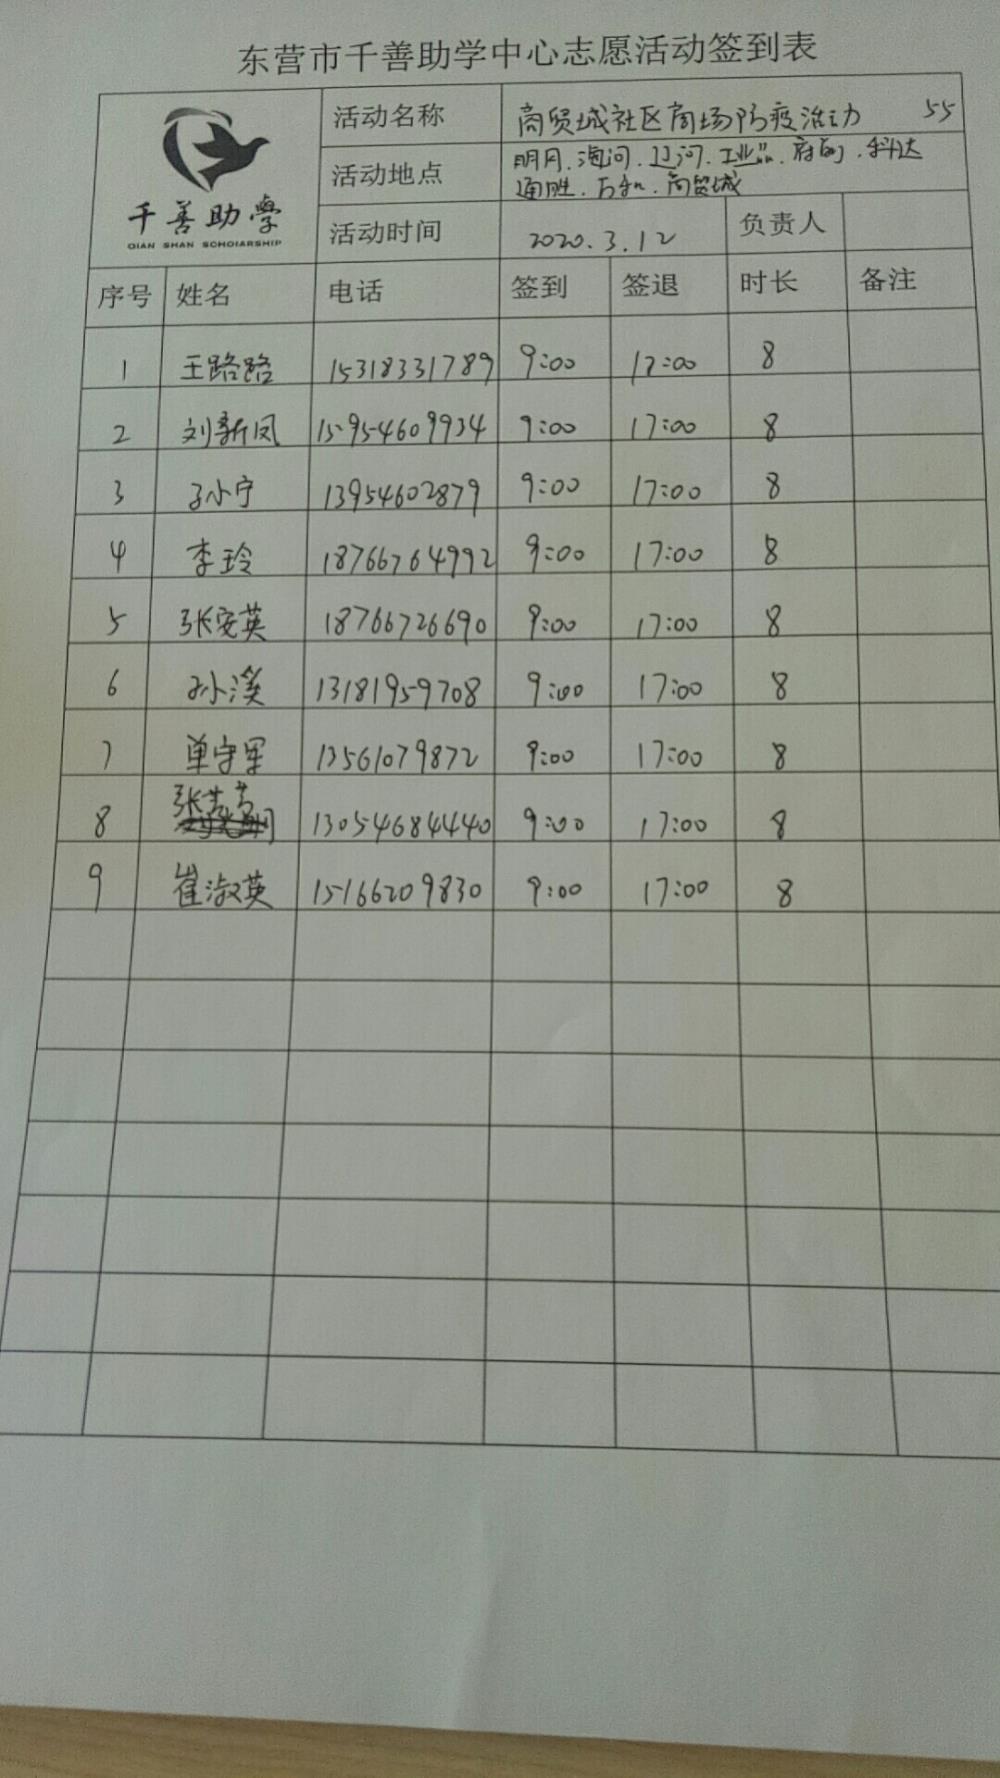 东营市千善助学中心志愿活动签到表
千善助學
QIAN SHAN SCHOlARSHIP
活动名称 商贸城社区商场防疫活动 55
活动地点 明月.淘河.辽河.工业品.府前.科达
通胜.万和.商贸城
活动时间 2020.3.12 负责人
序号 姓名 电话 签到 签退 时长 备注
1 王路路 15318331789 9:00 17:00 8
2 刘新凤 15954609934 9:00 17:00 8
3 孙宁 13954602879 9:00 17:00 8
4 李玲 18766764992 9:00 17:00 8
5 张安英 18766726690 9:00 17:00 8
6 孙溪 13181959708 9:00 17:00 8
7 单守军 13561079872 9:00 17:00 8
8 张 13054684440 9:00 17:00 8
9 崔淑英 15166209830 9:00 17:00 8